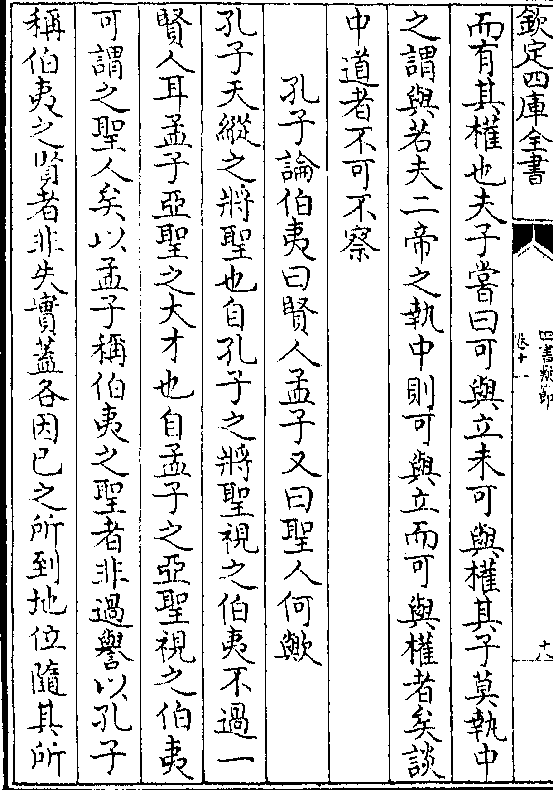 欽定四庫全書
四書疑節
卷十一
十八
而有其權也夫子嘗曰可與立未可與權其子莫執中
之謂與若夫二帝之執中則可與立而可與權者矣談
中道者不可不察
孔子論伯夷曰賢人孟子又曰聖人何歟
孔子天縱之將聖也自孔子之將聖視之伯夷不過一
賢人耳孟子亞聖之大才也自孟子之亞聖視之伯夷
可謂之聖人矣以孟子稱伯夷之聖者非過譽以孔子
稱伯夷之賢者非失實蓋各因已之所到地位隨其所